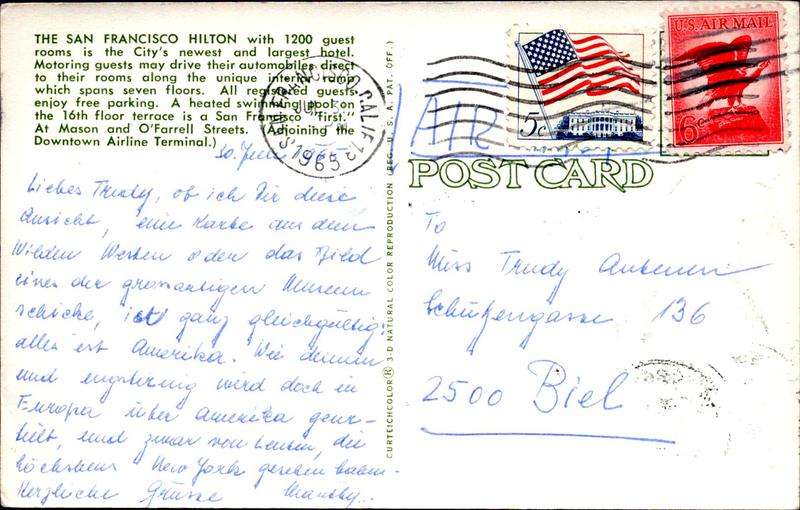 THE SAN FRANCISCO HILTON with 1200 guest
rooms is the City's newest and largest hotel.
Motoring guests may drive their automobiles direct
to their rooms along the unique interior ramp
which spans seven floors. All registered guests
enjoy free parking. A heated swimming pool on
the 16th floor terrace is a San Francisco "first."
At Mason and O'Farrell Streets. (Adjoining the
Downtown Airline Terminal.)
30. Juni 1965
Liebes Trudy, ob ich Dir diese
Ansicht, eine Karte aus dem
Wilden Westen oder das Bild
eines der grossartigen Museen
schicke, ist ganz gleichgültig:
alles ist Amerika. Wie dumm
und engstirnig wird doch in
Europa über Amerika geur-
teilt, und zwar von Leuten, die
höchstens New York gesehen haben.
Herzliche Grüsse
CURTEICHCOLOR® 3-D NATURAL COLOR REPRODUCTION (REG. U.S.A. PAT. OFF.)
SAN FRANCISCO, CALIF. 12
JUL
1965
5c
U.S. AIR MAIL
6c
AIR
POST CARD
To
Miss Trudy Antenen
Schützengasse 136
2500 Biel